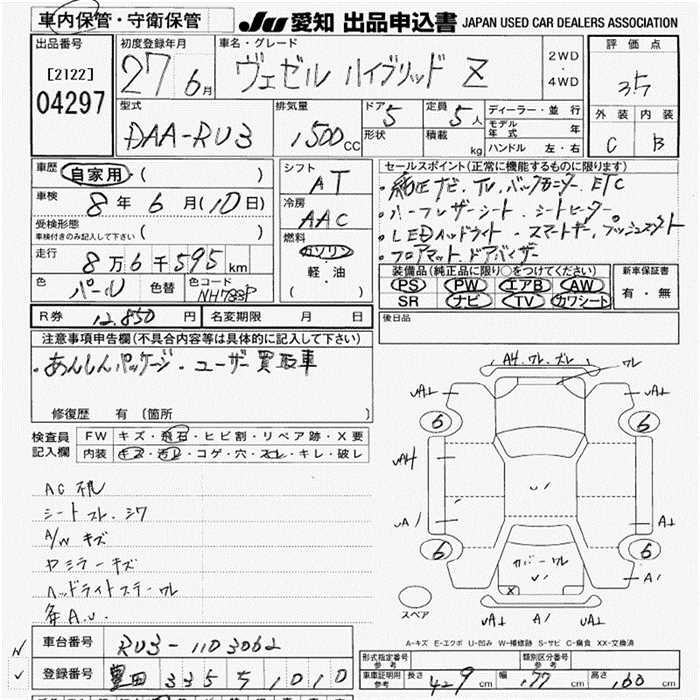 車内保管・守衛保管
JU 愛知 出品申込書 JAPAN USED CAR DEALERS ASSOCIATION
出品番号
[2122]
04297
初度登録年月
27 6月
車名・グレード
ヴェゼル ハイブリッド Z
2WD
・
4WD
評価点
3.5
外装 内装
C B
型式
DAA-RU3
排気量
1500cc
ドア 5
形状
定員 5人
積載 kg
ディーラー・並行
モデル年式 年
ハンドル 左・右
車歴 自家用・( )
車検 8年 6月(10日)
受検形態
車検付きのみ記入して下さい ( )
走行 8万6千595km
色 パール 色替 色コード NH788P
シフト AT
冷房 AAC
燃料
ガソリン
軽・油
( )
セールスポイント(正常に機能するものに限ります)
・純正ナビ、TV、バックカメラ、ETC
・ハーフレザーシート・シートヒーター
・LEDヘッドライト・スマートキー、プッシュスタート
・フロアマット、ドアバイザー
装備品(純正品に限り○をつけてください)
PS PW エアB AW
SR ナビ TV カワシート
新車保証書
有・無
R券 12,850円 名変期限 月 日
後日品
注意事項申告欄(不具合内容等は具体的に記入して下さい)
・あんしんパッケージ・ユーザー買取車
修復歴 有 (箇所 )
検査員記入欄
FW キズ・飛石・ヒビ割・リペア跡・X要
内装 キズ・汚レ・コゲ・穴・スレ・キレ・破レ
シートスレ、シワ
A/W キズ
ヘッドライトステーワレ
AH、ワレ、ズレ
ワレ
カバーワレ
6
6
6
6
スペア
A-キズ E-エクボ U-凹み W-補修跡 S-サビ C-腐食 XX-交換済
車台番号 RU3-1103062
登録番号 豊田 335 ち 1010
形式指定番号 参考
類別区分番号 参考
車庫証明用 参考 長さ 429cm 幅 177cm 高さ 160cm